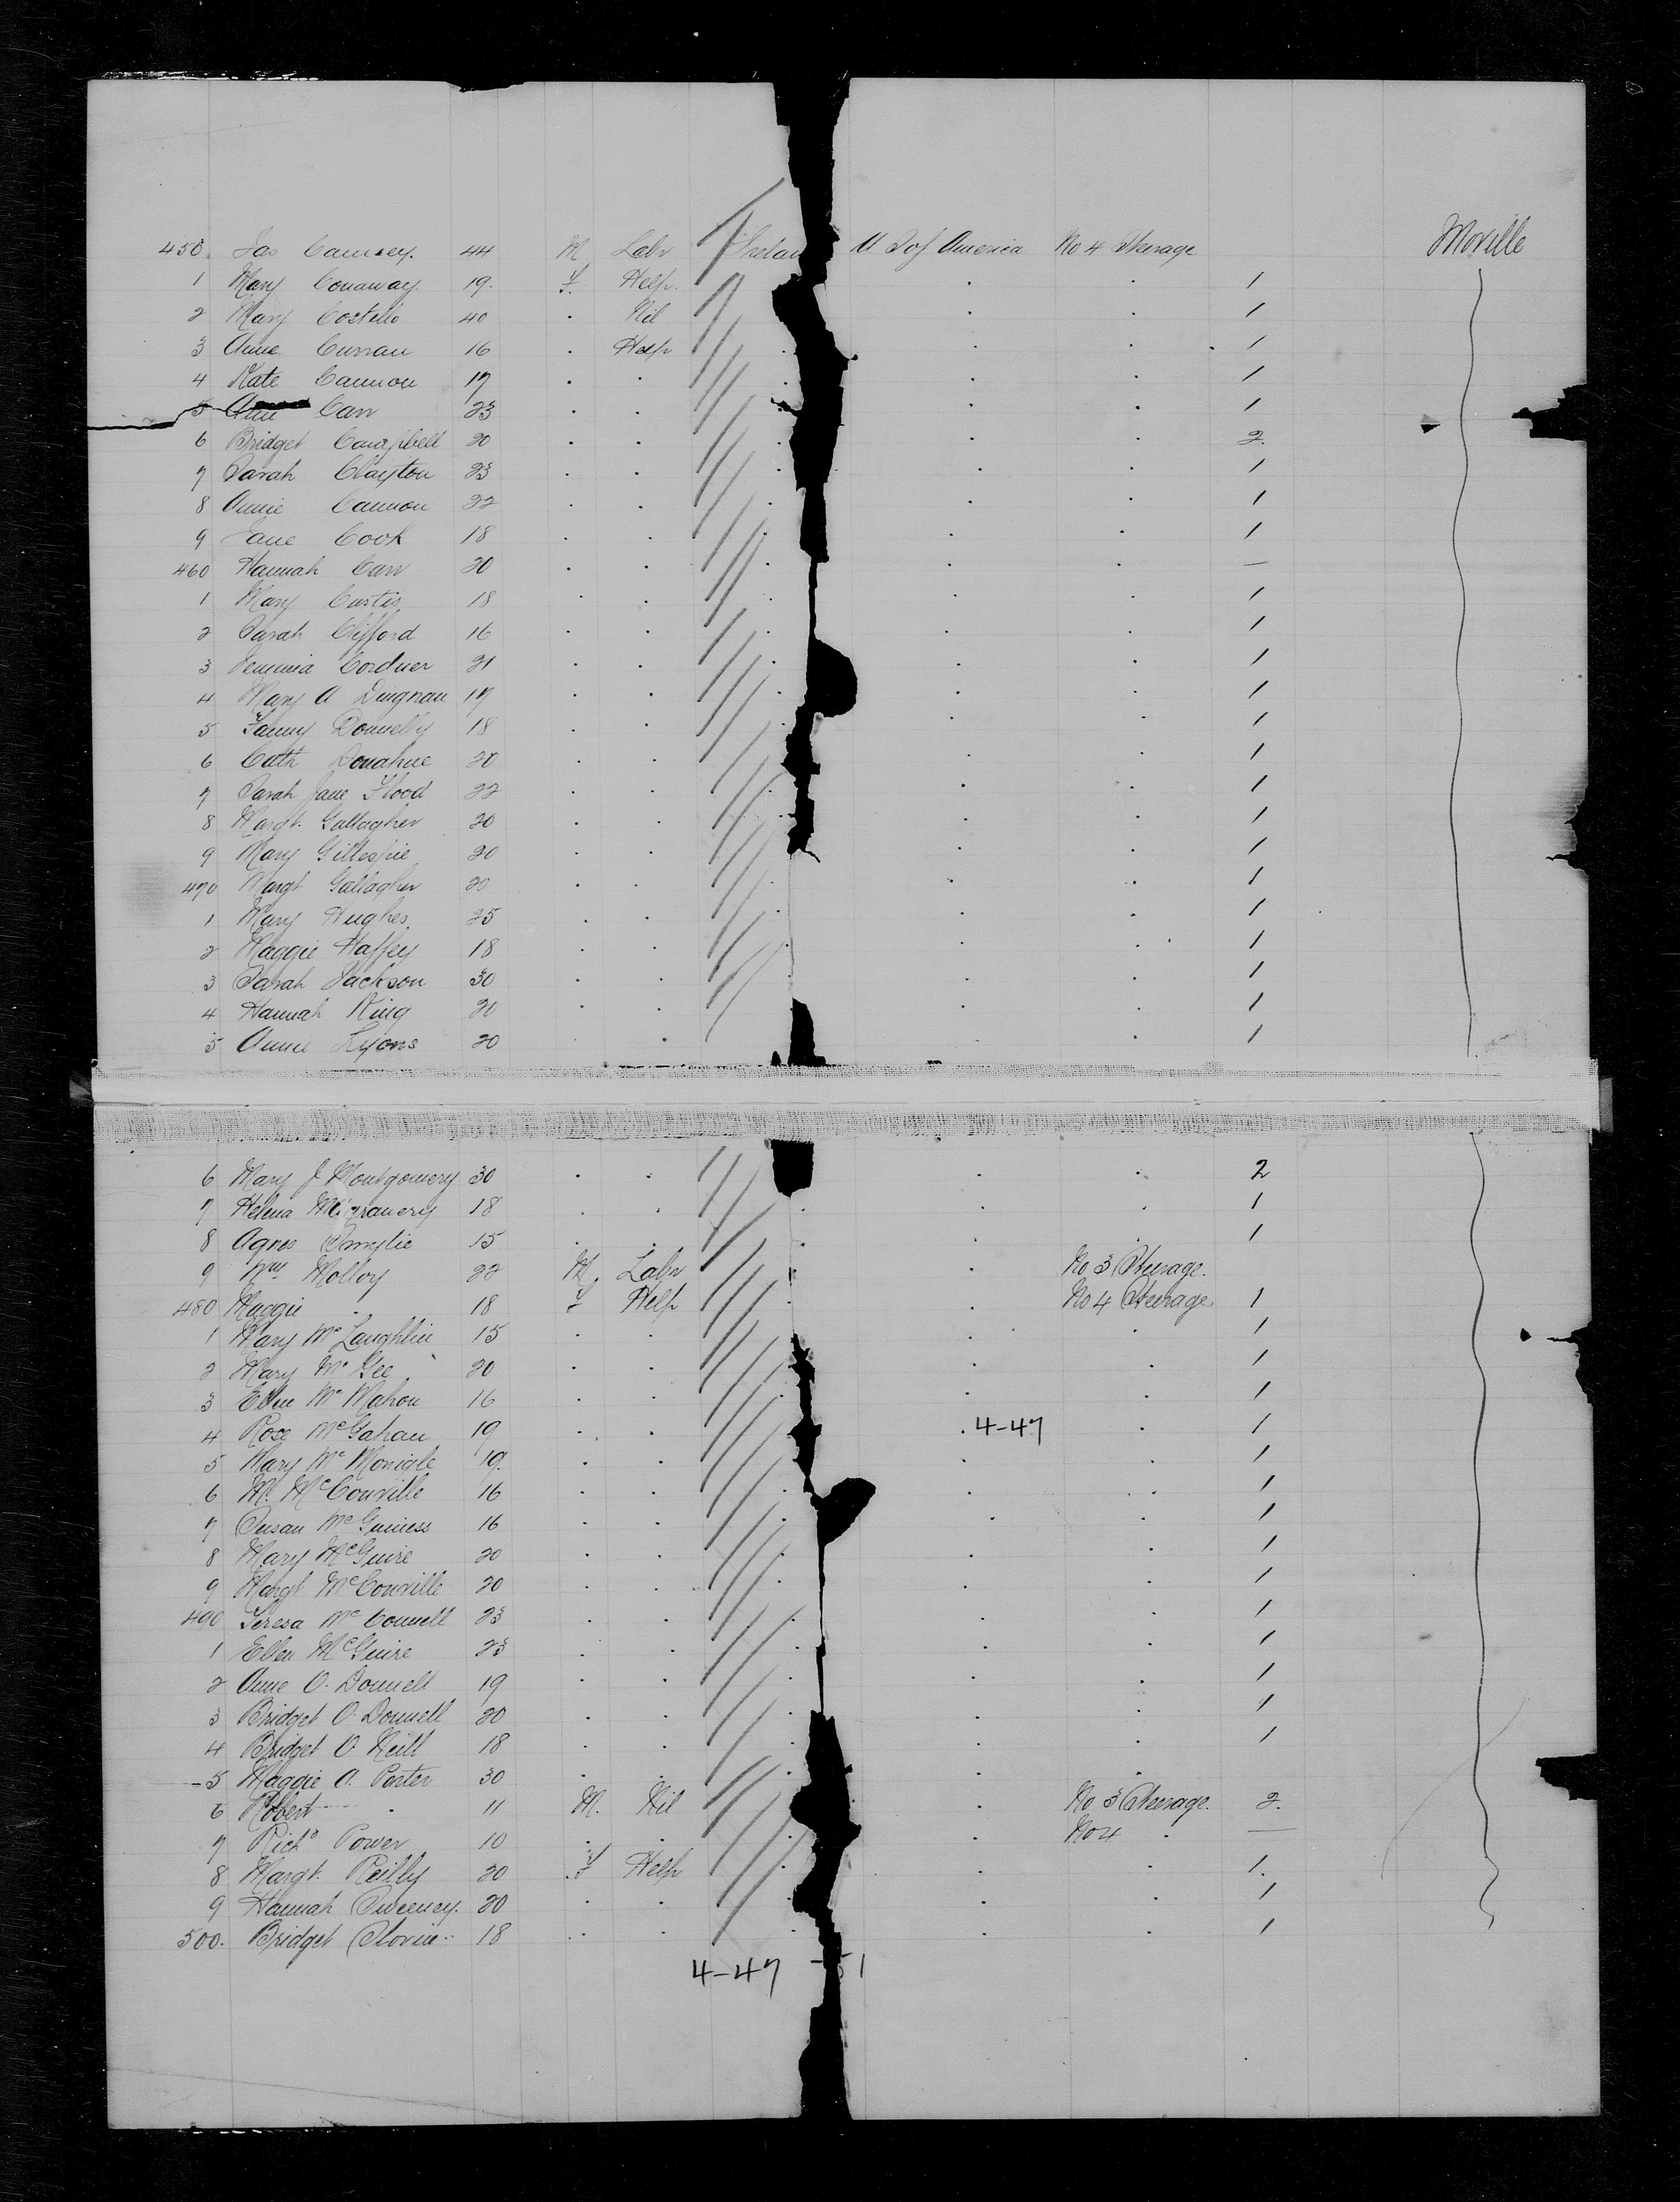 Moville
450 Jas 44 M Labr Irelan U S of America No 4 Steerage
1 Mary Conaway 19. F. Help. . . 1
2 Mary Costello 40 . Nil . . 1
3 Anne Curran 16 . Help . . 1
4 Kate Cannon 17 . . . . 1
5 Carr 23 . . . . 1
6 Bridget Campbell 20 . . . . 2.
7 Sarah Clayton 23 . . . . 1
8 Annie Cannon 22 . . . . 1
9 Jane Cook 18 . . . . 1
460 Hannah Carr 20 . . . . —
1 Mary Curtis 18 . . . . 1
2 Sarah Clifford 16 . . . . 1
3 Jemima Cordner 21 . . . . 1
4 Mary A Duignan 17 . . . . 1
5 Fanny Donnelly 18 . . . . 1
6 Cath Donahue 20 . . . . 1
7 Sarah Jane Flood 22 . . . . 1
8 Margt. Gallagher 20 . . . . 1
9 Mary Gillespie 20 . . . . 1
470 Margt Gallagher 20 . . . . 1
1 Mary Hughes 25 . . . . 1
2 Maggie Haffey 18 . . . . 1
3 Sarah Jackson 30 . . . . 1
4 Hannah King 20 . . . . 1
5 Annie Lyons 20 . . . 1
6 Mary J Montgomery 30 . . . . 2
7 Helena 18 . . . . 1
8 Agnes Smylie 15 . . . . 1
9 Wm Molloy 22 M. Labr . No 3 Steerage.
480 Maggie . 18 F Help . No 4 Steerage. 1
1 Mary McLaughlin 15 . . . . 1
2 Mary McGee 20 . . . . 1
3 Ellen McMahon 16 . . . . 1
4 Rose McGahan 19 . . . 4-47 . 1
5 Mary McMonigle 19. . . . . 1
6 M. McConville 16 . . . . 1
7 Susan McGuiness 16 . . . . 1
8 Mary McGuire 20 . . . . 1
9 Margt McConville 20 . . . . 1
490 Teresa McConnell 23 . . . . 1
1 Ellen McGuire 23 . . . . 1
2 Anne O. Donnell 19 . . . . 1
3 Bridget O. Donnell 20 . . . . 1
4 Bridget O Neill 18 . . . . 1
-5 Maggie A. Porter 30 . . . .
6 Robert . 11 M. Nil . No 3 Steerage. 2.
7 Richd Power 10 . . . No 4 . —
8 Margt. Reilly 20 F Help . . 1.
9 Hannah Sweeney. 20 . . . . 1
500. Bridget 18 . . . . 1
4-47